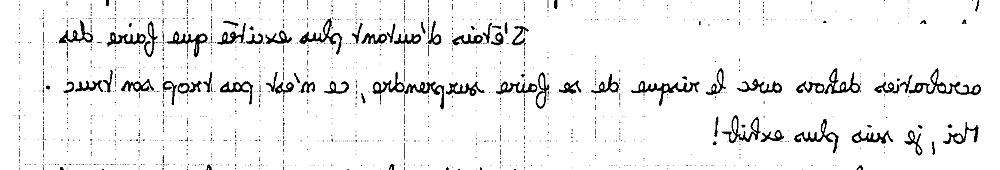 J'étais d'autant plus excitée que faire des
acrobaties dehors avec le risque de se faire surprendre, ce n'est pas trop son truc.
Moi, je suis plus exhib!